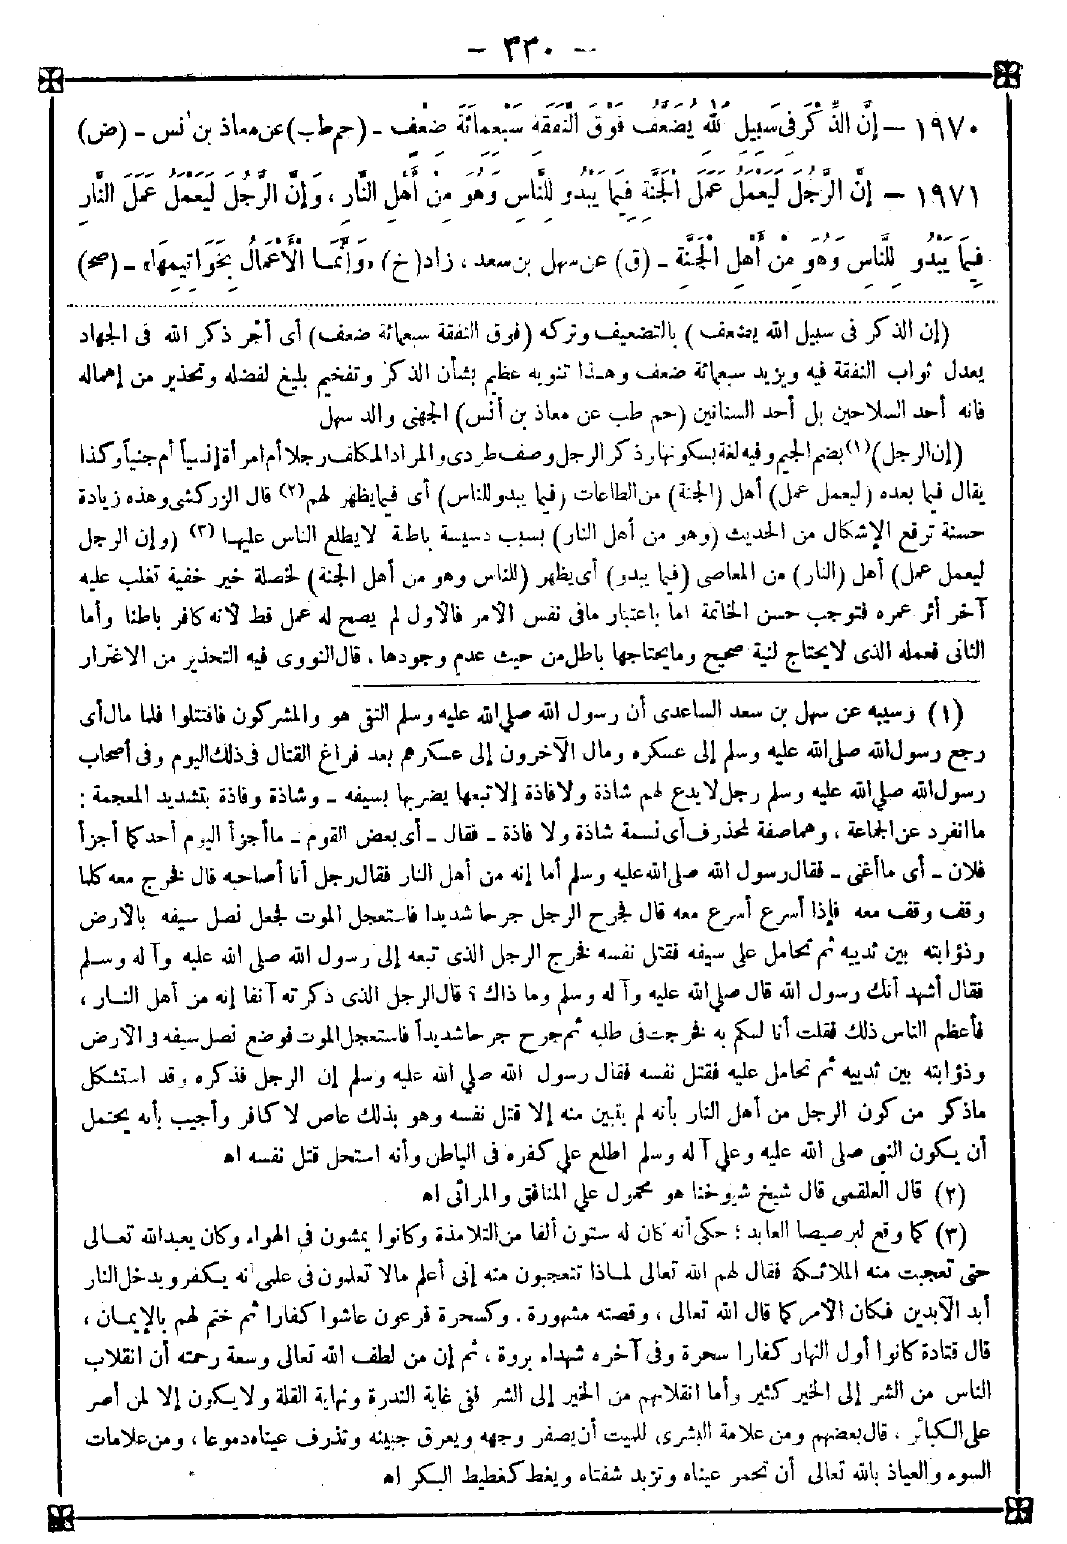 — ٣٣٠ —
١٩٧٠ — إِنَّ الذِّكْرَ فِي سَبِيلِ اللهِ يُضَعَّفُ فَوْقَ النَّفَقَةِ سَبْعَمِائَةِ ضِعْفٍ - (حم طب) عن معاذ بن أنس - (ض)
١٩٧١ — إِنَّ الرَّجُلَ لَيَعْمَلُ عَمَلَ الْجَنَّةِ فِيمَا يَبْدُو لِلنَّاسِ وَهُوَ مِنْ أَهْلِ النَّارِ ، وَإِنَّ الرَّجُلَ لَيَعْمَلُ عَمَلَ النَّارِ
فِيمَا يَبْدُو لِلنَّاسِ وَهُوَ مِنْ أَهْلِ الْجَنَّةِ - (ق) عن سهل بن سعد ، زاد (خ) «وَإِنَّمَا الْأَعْمَالُ بِخَوَاتِيمِهَا» - (صح)
(إن الذكر فى سبيل الله يضعف) بالتضعيف وتركه (فوق النفقة سبعمائة ضعف) أى أجر ذكر الله فى الجهاد
يعدل ثواب النفقة فيه ويزيد سبعمائة ضعف وهذا تنويه عظيم بشأن الذكر وتفخيم بليغ لفضله وتحذير من إهماله
فانه أحد السلاحين بل أحد السنانين (حم طب عن معاذ بن أنس) الجهنى والد سهل
(إن الرجل) (١) بضم الجيم وفيه لغة بسكونها وذكر الرجل وصف طردى والمراد المكلف رجلا أم امرأة إنسياً أم جنياً وكذا
يقال فيما بعده (ليعمل عمل) أهل (الجنة) من الطاعات (فيما يبدو للناس) أى فيما يظهر لهم (٢) قال الزركشى وهذه زيادة
حسنة ترفع الإشكال من الحديث (وهو من أهل النار) بسبب دسيسة باطنة لا يطلع الناس عليها (٣) (وإن الرجل
ليعمل عمل) أهل (النار) من المعاصى (فيما يبدو) أى يظهر (للناس وهو من أهل الجنة) لخصلة خير خفية تغلب عليه
آخر أثر عمره فتوجب حسن الخاتمة اما باعتبار مافى نفس الأمر فالأول لم يصح له عمل قط لأنه كافر باطنا وأما
الثانى فعمله الذى لا يحتاج لنية صحيح وما يحتاجها باطل من حيث عدم وجودها ، قال النووى فيه التحذير من الاغترار
(١) وسببه عن سهل بن سعد الساعدى أن رسول الله صلى الله عليه وسلم التقى هو والمشركون فاقتتلوا فلما مال أى
رجع رسول الله صلى الله عليه وسلم إلى عسكره ومال الآخرون إلى عسكرهم بعد فراغ القتال فى ذلك اليوم وفى أصحاب
رسول الله صلى الله عليه وسلم رجل لا يدع لهم شاذة ولا فاذة إلا تبعها يضربها بسيفه - وشاذة وفاذة بتشديد المعجمة :
ما انفرد عن الجماعة ، وهما صفة لمحذوف أى نسمة شاذة ولا فاذة - فقال - أى بعض القوم - ما أجزأ اليوم أحد كما أجزأ
فلان - أى ما أغنى - فقال رسول الله صلى الله عليه وسلم أما إنه من أهل النار فقال رجل أنا أصاحبه قال فخرج معه كلما
وقف وقف معه فإذا أسرع أسرع معه قال فجرح الرجل جرحا شديدا فاستعجل الموت فجعل نصل سيفه بالأرض
وذؤابته بين ثدييه ثم تحامل على سيفه فقتل نفسه فخرج الرجل الذى تبعه إلى رسول الله صلى الله عليه وآله وسلم
فقال أشهد أنك رسول الله قال صلى الله عليه وآله وسلم وما ذاك ؟ قال الرجل الذى ذكرته آنفا إنه من أهل النار ،
فأعظم الناس ذلك فقلت أنا لكم به فخرجت فى طلبه ثم جرح جرحا شديداً فاستعجل الموت فوضع نصل سيفه فى الأرض
وذؤابته بين ثدييه ثم تحامل عليه فقتل نفسه فقال رسول الله صلى الله عليه وسلم إن الرجل فذكره وقد استشكل
ماذكر من كون الرجل من أهل النار بأنه لم يتبين منه إلا قتل نفسه وهو بذلك عاص لا كافر وأجيب بأنه يحتمل
أن يكون النبى صلى الله عليه وعلى آله وسلم اطلع على كفره فى الباطن وأنه استحل قتل نفسه اه
(٢) قال العلقمى قال شيخ شيوخنا هو محمول على المنافق والمرائى اه
(٣) كما وقع لبرصيصا العابد : حكى أنه كان له ستون ألفا من التلامذة وكانوا يمشون فى الهواء وكان يعبد الله تعالى
حتى تعجبت منه الملائكة فقال لهم الله تعالى لماذا تتعجبون منه إنى أعلم مالا تعلمون فى علمى أنه يكفر ويدخل النار
أبد الآبدين فكان الأمر كما قال الله تعالى ، وقصته مشهورة . وكسحرة فرعون عاشوا كفارا ثم ختم لهم بالإيمان ،
قال قتادة كانوا أول النهار كفارا سحرة وفى آخره شهداء بررة ، ثم إن من لطف الله تعالى وسعة رحمته أن انقلاب
الناس من الشر إلى الخير كثير وأما انقلابهم من الخير إلى الشر ففى غاية الندرة ونهاية القلة ولا يكون إلا لمن أصر
على الكبائر ، قال بعضهم ومن علامة البشرى للميت أن يصفر وجهه ويعرق جبينه وتذرف عيناه دموعا ، ومن علامات
السوء والعياذ بالله تعالى أن تحمر عيناه وتزبد شفتاه ويغط كغطيط البكر اه